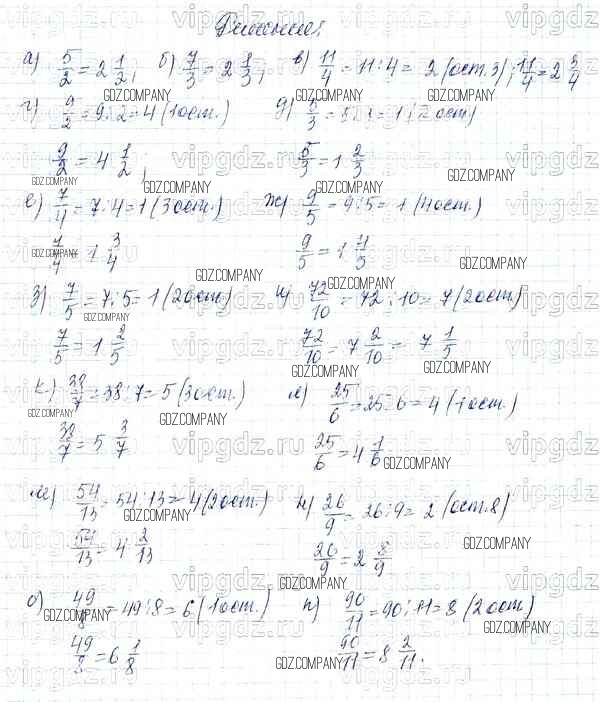 Решение:
а) 5/2 = 2 1/2; б) 7/3 = 2 1/3; в) 11/4 = 11:4 = 2 (ост.3); 11/4 = 2 3/4
г) 9/2 = 9:2 = 4 (1 ост.) д) 5/3 = 5:3 = 1 (2 ост)
9/2 = 4 1/2; 5/3 = 1 2/3
е) 7/4 = 7:4 = 1 (3 ост.) ж) 9/5 = 9:5 = 1 (4 ост.)
7/4 = 1 3/4 9/5 = 1 4/5
з) 7/5 = 7:5 = 1 (2 ост) и) 72/10 = 72:10 = 7 (2 ост)
7/5 = 1 2/5 72/10 = 7 2/10 = 7 1/5
к) 38/7 = 38:7 = 5 (3 ост.) л) 25/6 = 25:6 = 4 (1 ост.)
38/7 = 5 3/7 25/6 = 4 1/6
м) 54/13 = 54:13 = 4 (2 ост.) н) 26/9 = 26:9 = 2 (ост.8)
54/13 = 4 2/13 26/9 = 2 8/9
о) 49/8 = 49:8 = 6 (1 ост.) п) 90/11 = 90:11 = 8 (2 ост)
49/8 = 6 1/8 90/11 = 8 2/11.
vipgdz.ru
GDZ.COMPANY